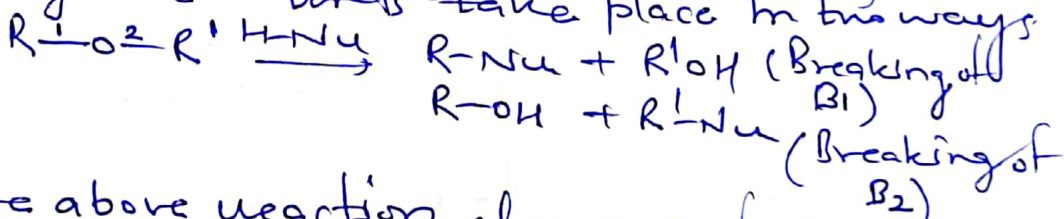 take place in two ways.
R-¹O-²R' H-Nu → R-Nu + R'OH (Breaking of B1)
R-OH + R'-Nu (Breaking of B2)
e above reaction